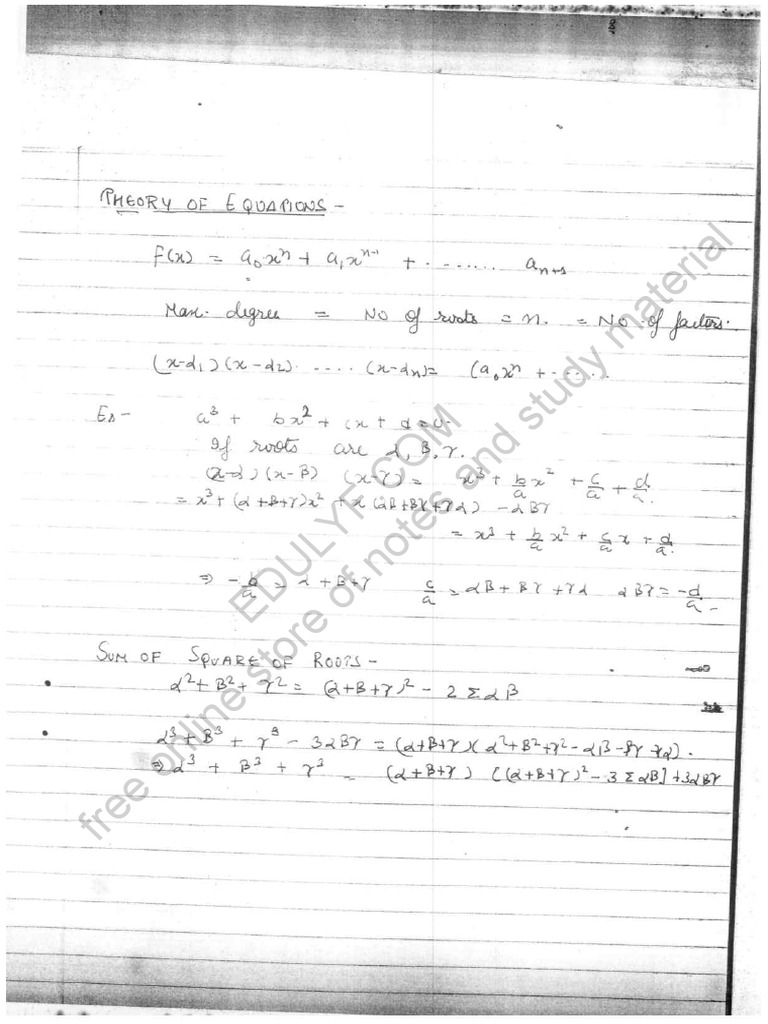 THEORY OF EQUATIONS -
f(x) = a₀xⁿ + a₁xⁿ⁻¹ + ........ aₙ₊₁
Max. degree = No of roots = n. = No. of factors.
(x-α₁)(x-α₂) .... (x-αₙ) = (a₀xⁿ + .....
Ex- a³ + bx² + cx + d = 0.
If roots are α, β, γ.
(x-α)(x-β) (x-γ) = x³ + b/a x² + c/a + d/a.
= x³ + (α+β+γ)x² + x(αβ+βγ+γα) - αβγ
= x³ + b/a x² + c/a x + d/a.
⇒ -b/a = α+β+γ c/a = αβ + βγ + γα αβγ = -d/a
SUM OF SQUARE OF ROOTS -
• α² + β² + γ² = (α+β+γ)² - 2 Σαβ
• α³ + β³ + γ³ - 3αβγ = (α+β+γ)(α²+β²+γ²-αβ-βγ-γα).
⇒ α³ + β³ + γ³ = (α+β+γ) [(α+β+γ)² - 3 Σαβ] + 3αβγ
EDULYF.COM
free online store of notes and study material